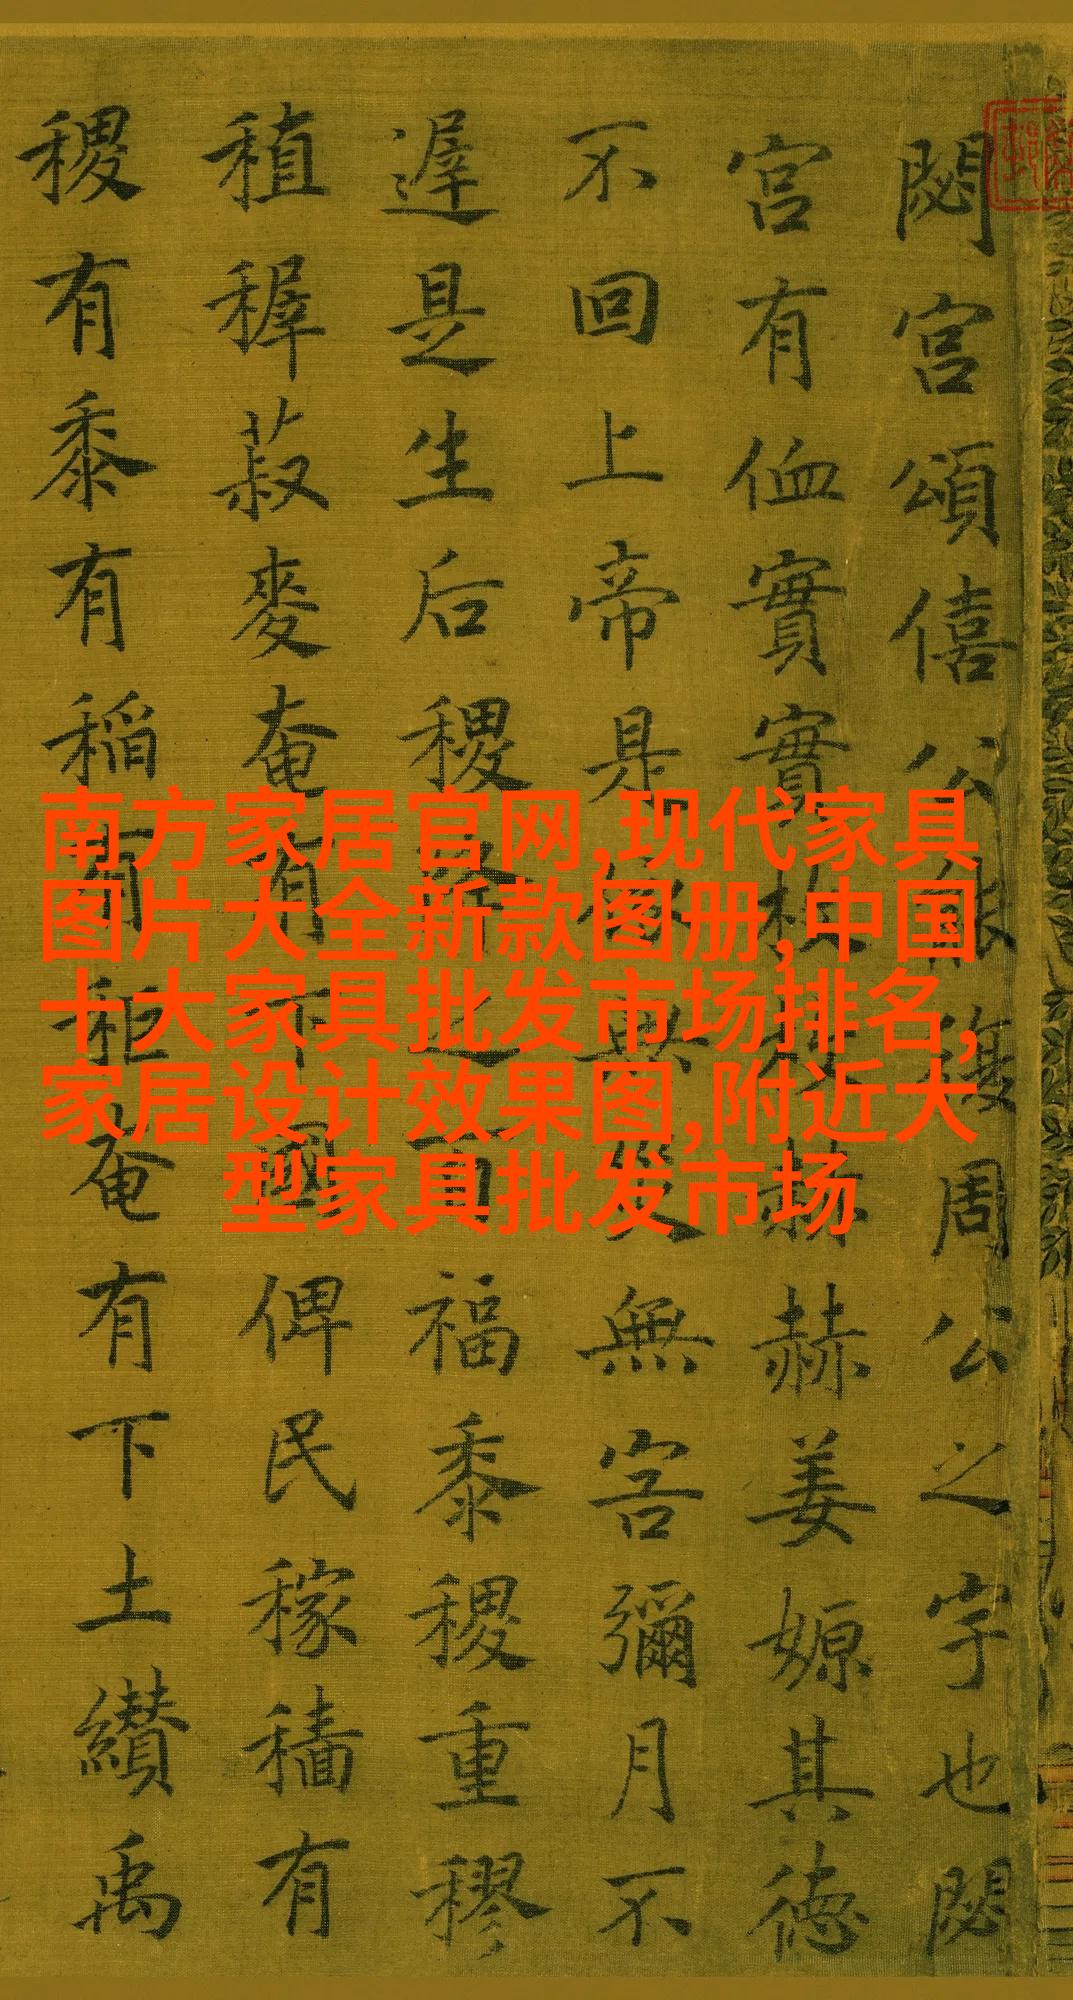 南方家居官网,现代家具
图片大全新款图册,中国
十大家具批发市场排名,
家居设计效果图,附近大
型家具批发市场
閟宮頌僖公能復周公之宇也閟
宮有侐實實枚枚赫赫姜嫄其德
不回上帝是依無災無害彌月不
遟是生后稷降之百福黍稷重穋
稙穉菽麥奄有下國俾民稼穡有
稷有黍有稻有秬奄有下土纘禹